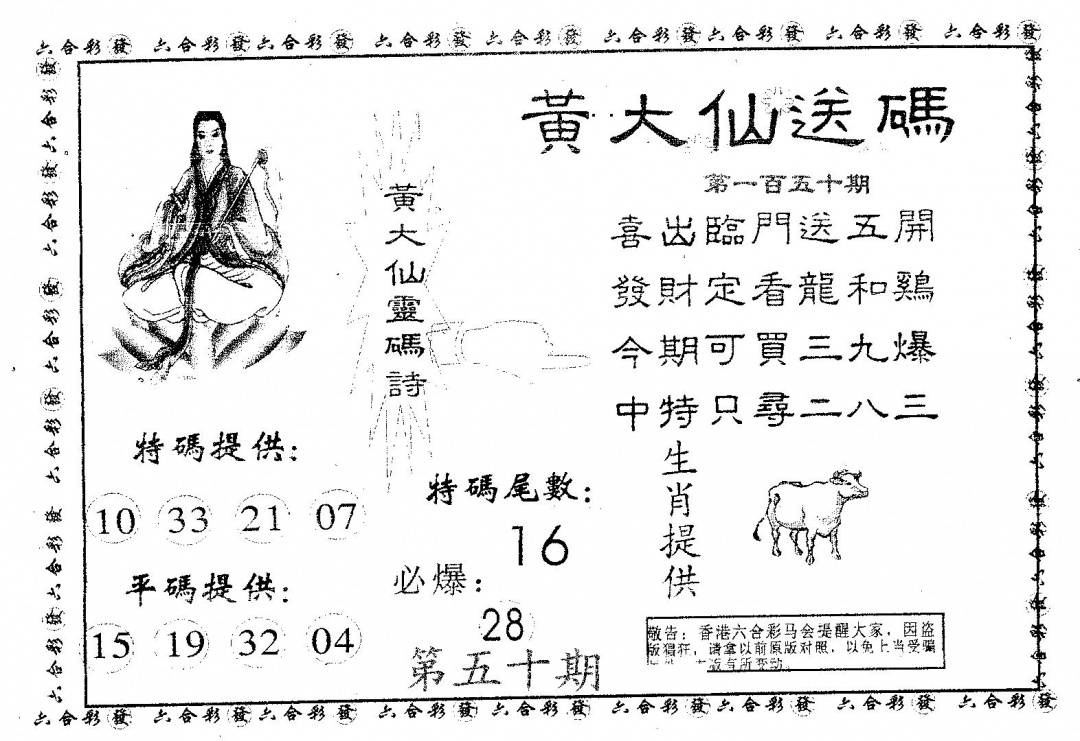 六合彩發 六合彩發 六合彩發 六合彩發 六合彩發 六合彩發 六合彩發 六合彩發 六合彩發
黃大仙送碼
第一百五十期
喜出臨門送五開
發財定看龍和鷄
今期可買三九爆
中特只尋二八三
黃大仙靈碼詩
特碼提供：
10 33 21 07
平碼提供：
15 19 32 04
特碼尾數：
16
必爆：
28
第五十期
生肖提供
敬告：香港六合彩马会提醒大家，因盗
版猖狂，请拿以前原版对照，以免上当受骗
版有所变动。
六合彩發 六合彩發 六合彩發 六合彩發 六合彩發 六合彩發 六合彩發 六合彩發 六合彩發